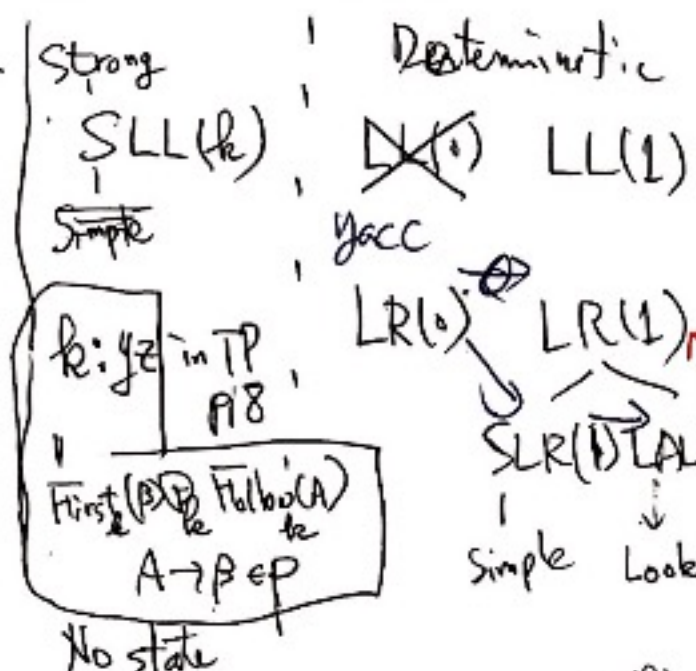 Strong
SLL(k)
Simple
k: yz in TP
p18
First_k(β)⊕_k Follow_k(A)
A→β∈P
No state
Deterministic
LL(0) LL(1)
yacc
LR(0) LR(1)
SLR(1) LAL
Simple Look